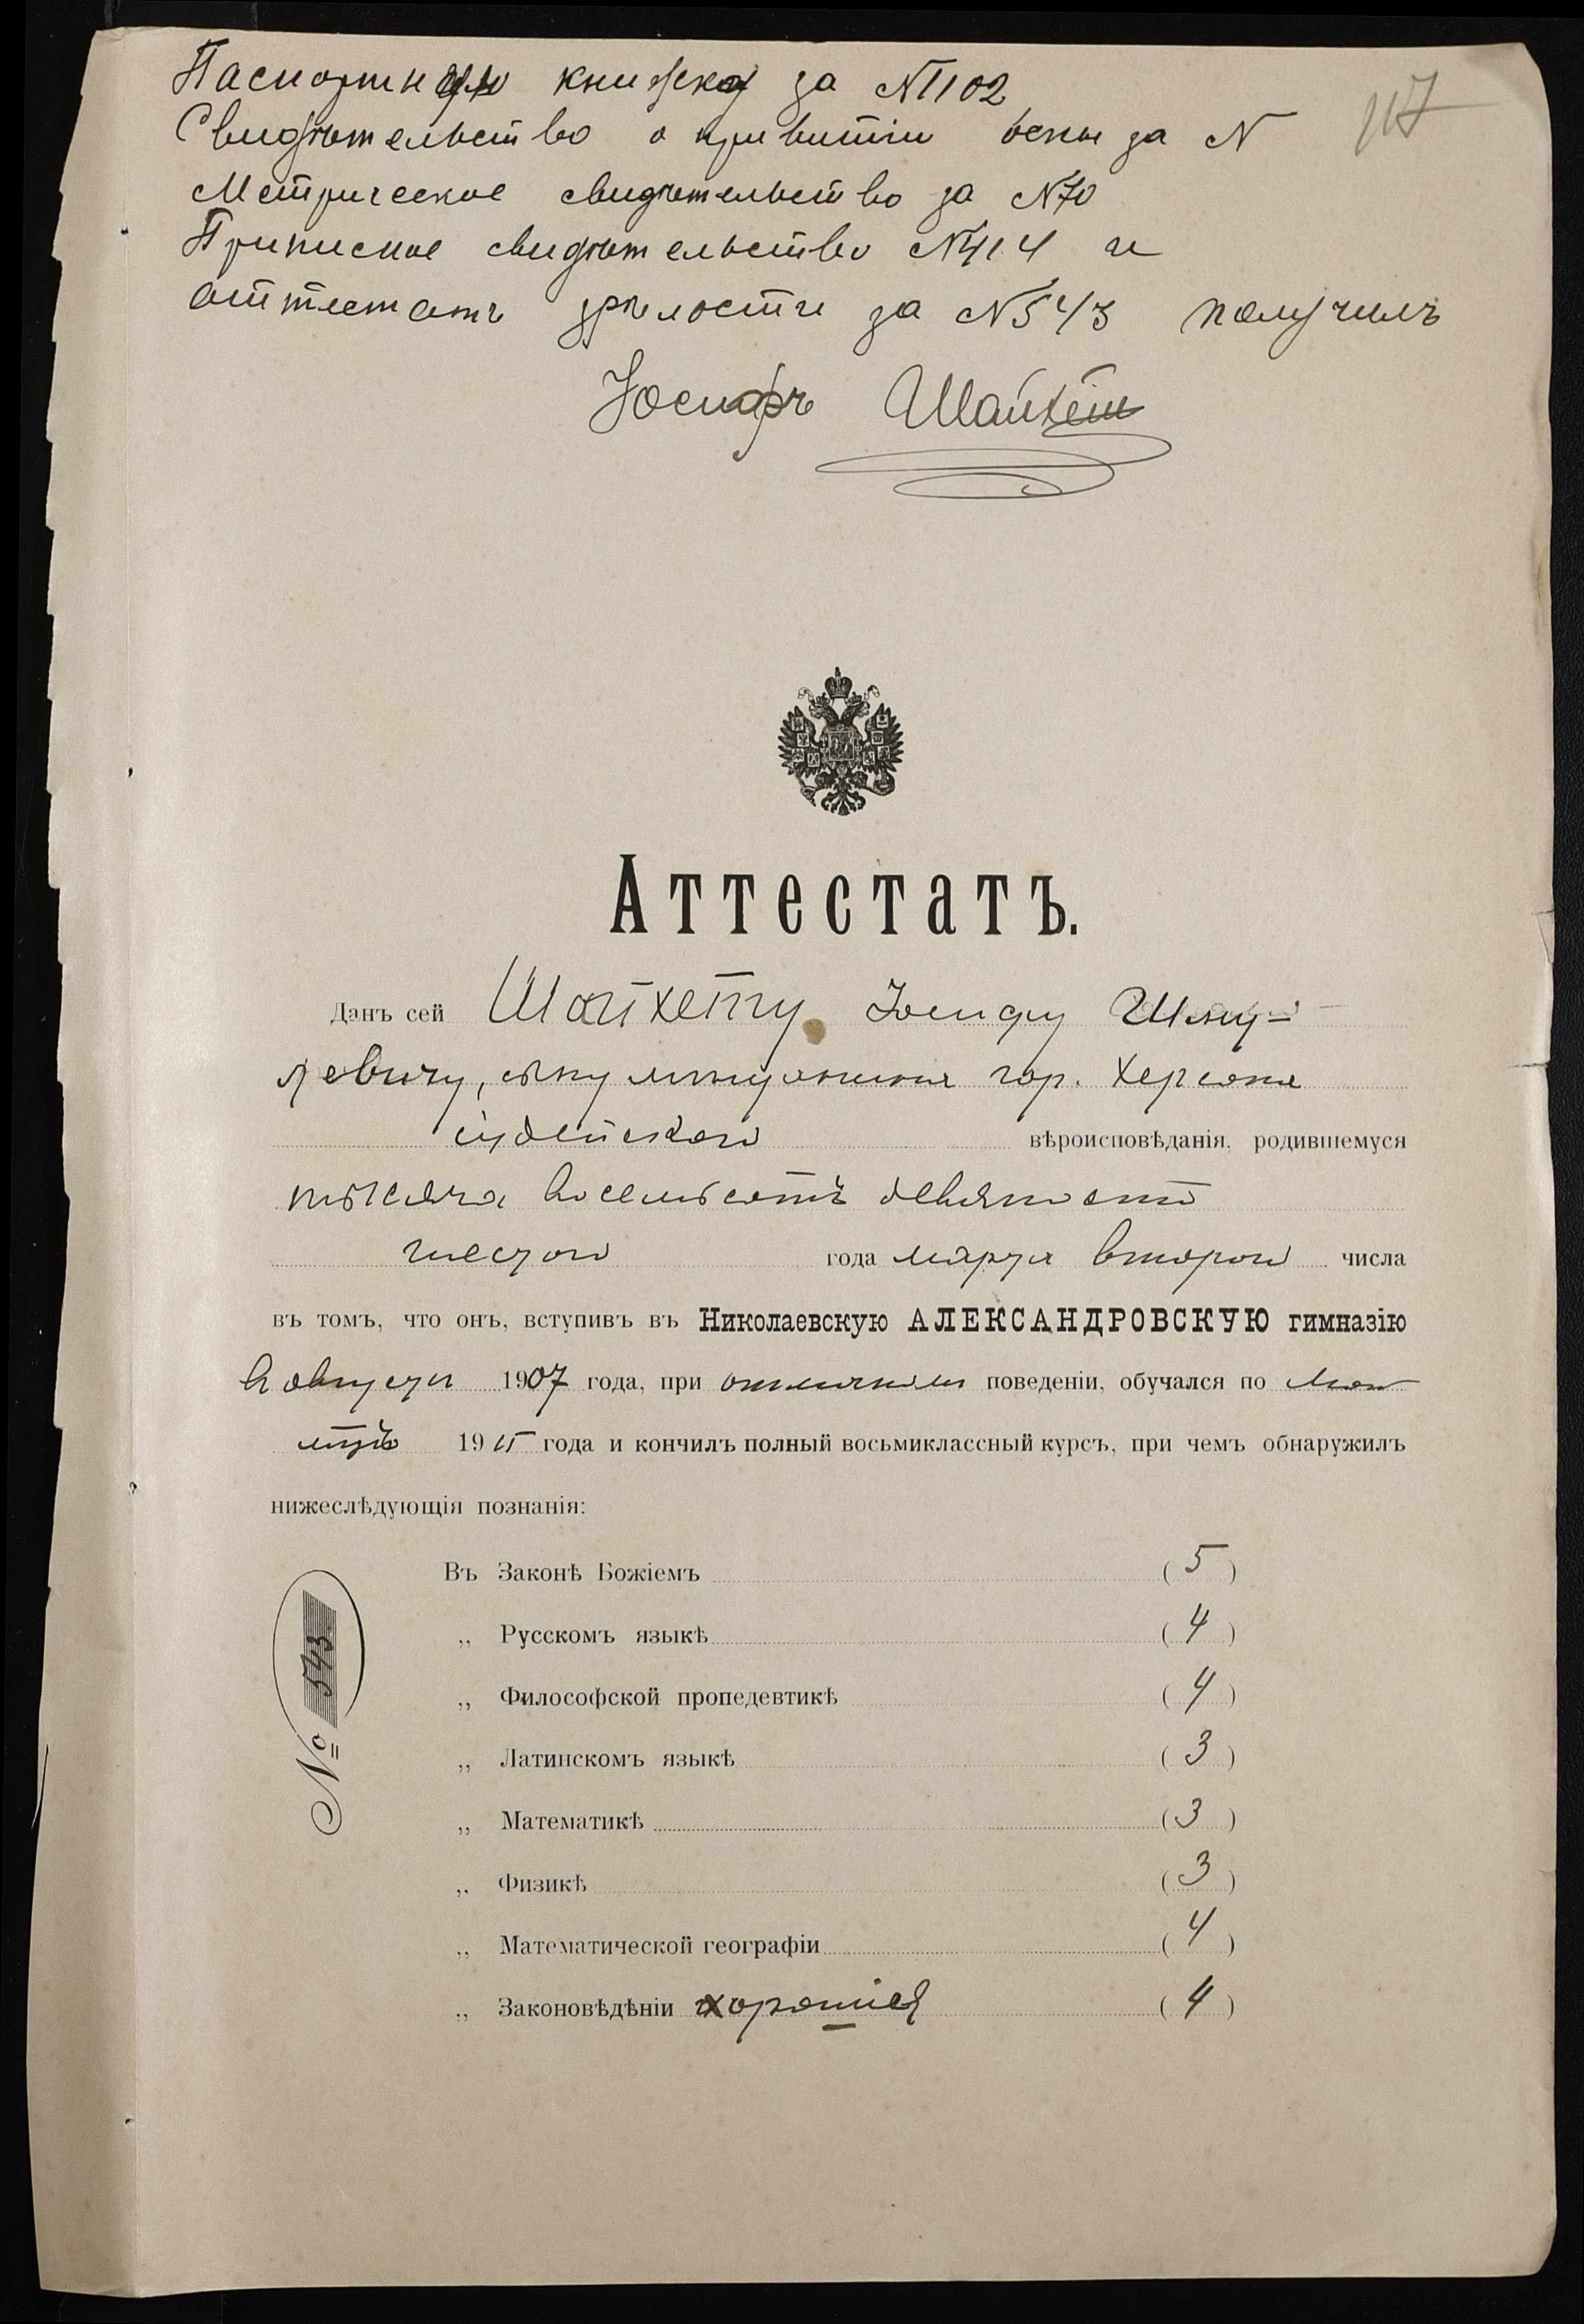 Паспортную книжку за №1102
117
Свидѣтельство о привитіи оспы за N
Метрическое свидѣтельство за №70
Приписное свидѣтельство №414 и
аттестатъ зрѣлости за №543 получилъ
Іосифъ Шайхетъ
Аттестатъ.
Данъ сей Шайхету Іосифу Шму-
левичу, сыну мѣщанина гор. Херсона
іудейскаго вѣроисповѣданія, родившемуся
тысяча восемьсотъ девяносто
шестого года марта второго числа
въ томъ, что онъ, вступивъ въ Николаевскую АЛЕКСАНДРОВСКУЮ гимназію
въ августѣ 1907 года, при отличномъ поведеніи, обучался по
1915 года и кончилъ полный восьмиклассный курсъ, при чемъ обнаружилъ
нижеслѣдующія познанія:
Въ Законѣ Божіемъ (5)
„ Русскомъ языкѣ (4)
„ Философской пропедевтикѣ (4)
„ Латинскомъ языкѣ (3)
„ Математикѣ (3)
„ Физикѣ (3)
„ Математической географіи (4)
„ Законовѣдѣніи хорошія (4)
№ 543